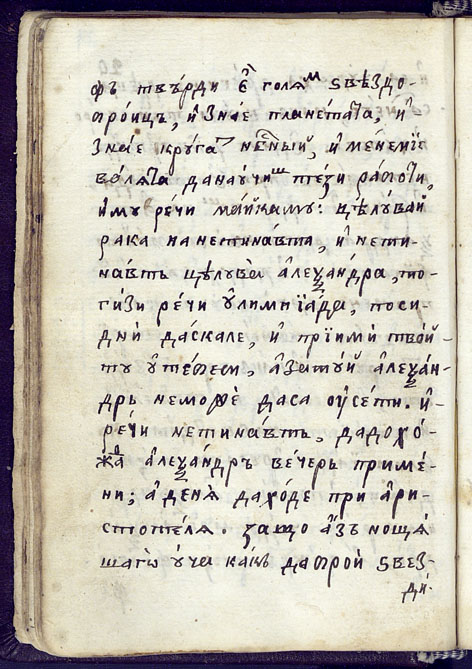 фъ твъ́рди е҆́ голѧ̀ᴹ ѕвѣздо-
бро́ицъ, и҆ зна́е планета́та, и҆
зна́е крꙋ́га нб҃ный, и҆ мене ми́е
во́лѧта да научиш те́зи ра́боти,
и҆ му ре́чи ма́йка му: цѣлꙋва́й
рака на нетина́вта, и҆ нети-
на́вть цѣлꙋва̀ а҆леѯа́ндра, то-
гизи ре́чи ѻ҆лимпїа́да, поси-
дни да́скале, и҆ прїими твой-
ту
а҆леѯа́н-
дръ немо́же даса ѹ҆се́ти. и҆
ре́чи нетина́вть, да дохо́-
жа а҆леѯа́ндръ ве́черь при ме́-
ни; а҆ деня̀ да хо́де при а҆ри-
стоте́ля. защо а҆́зъ нощя̀
ща го ѹ҆ча ка́къ да бро́й ѕвез-
ди́.